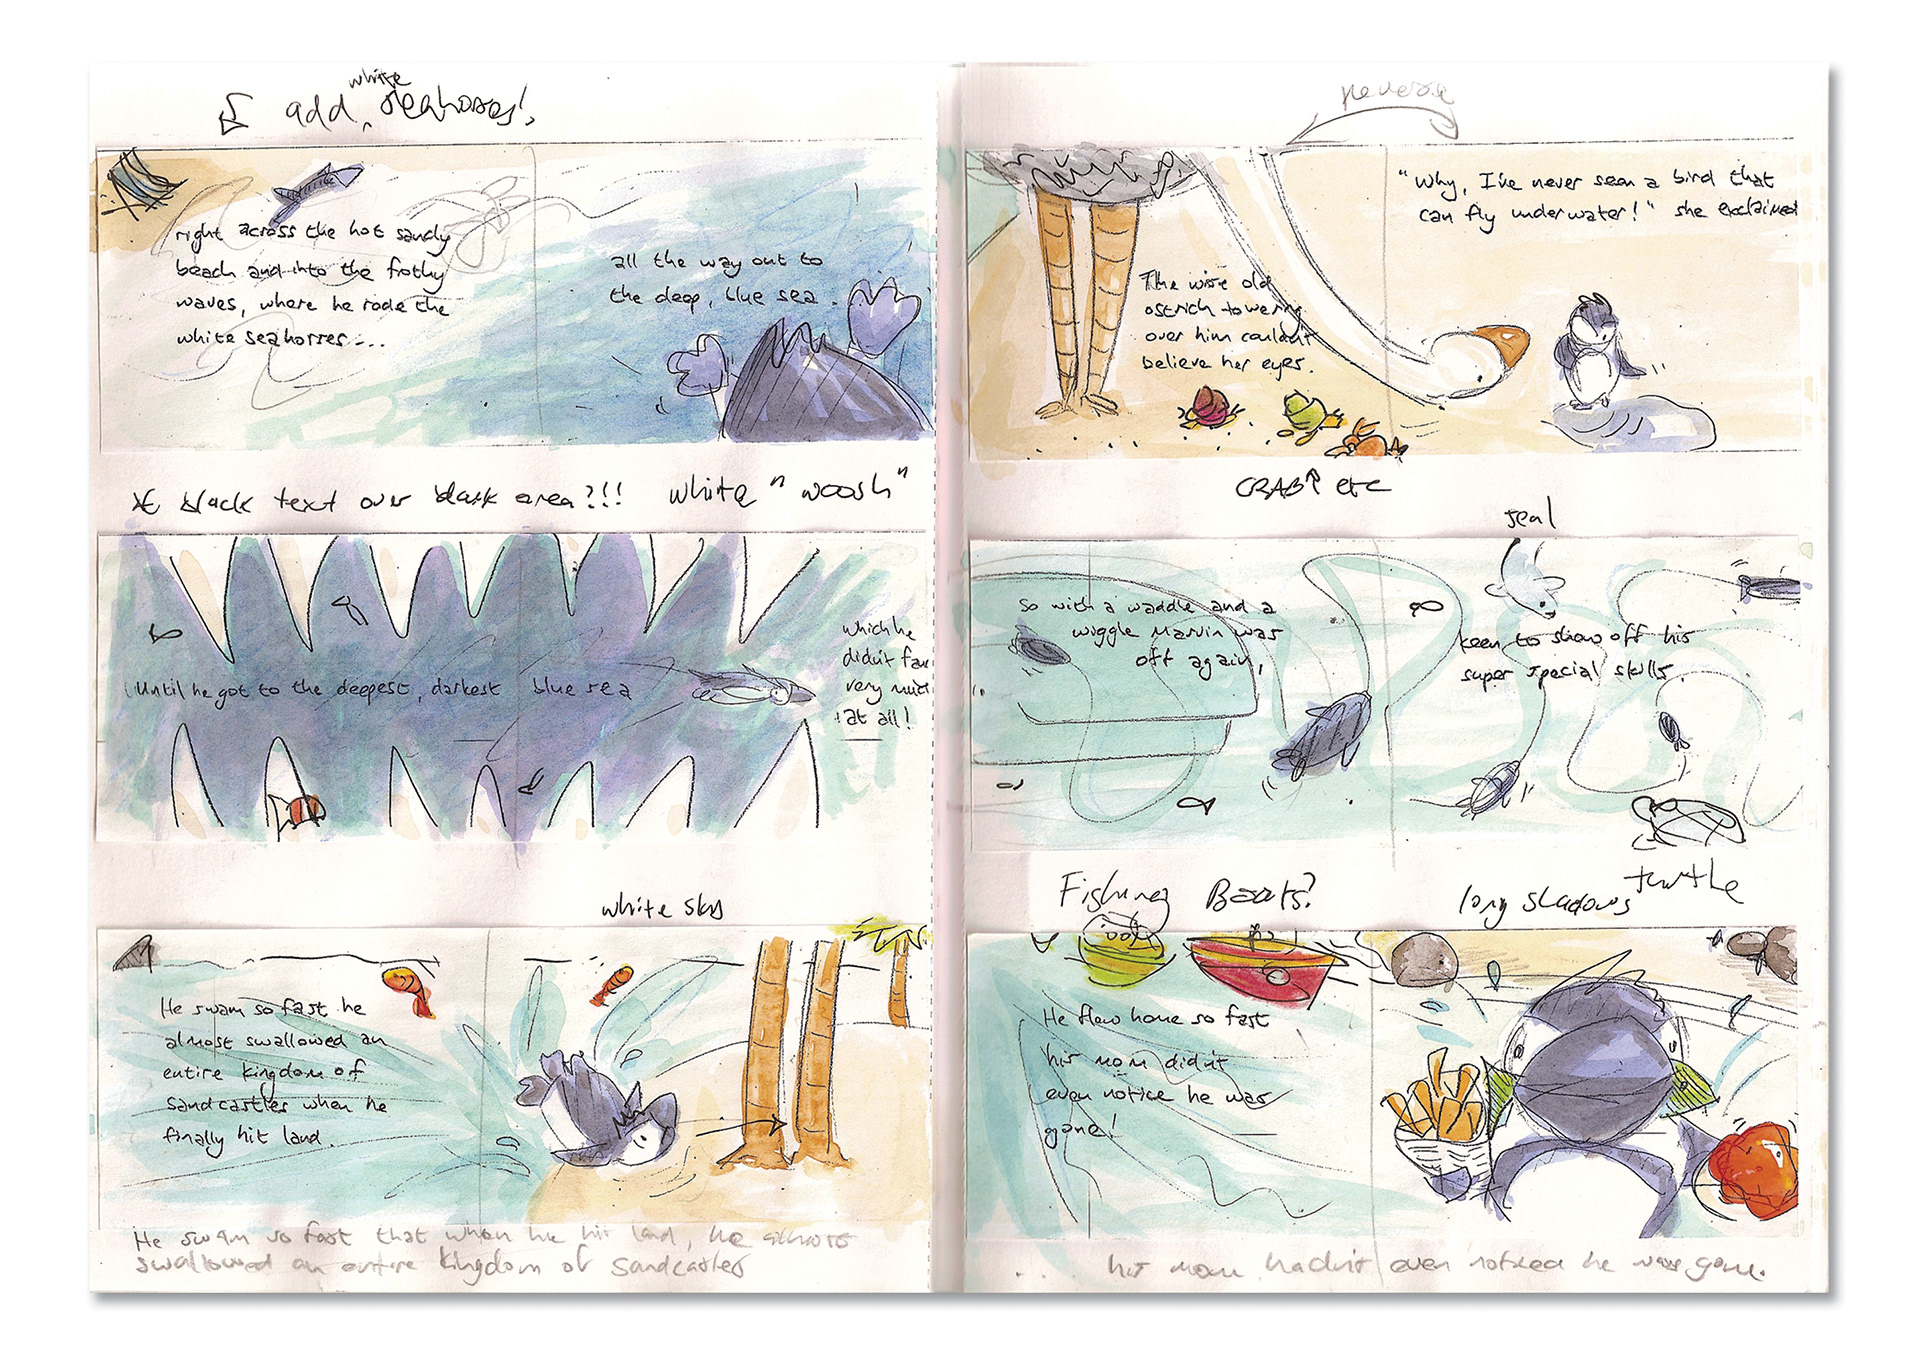 white
add seahorses!
right across the hot sandy
beach and into the frothy
waves, where he rode the
white seahorses....
all the way out to
the deep, blue sea.
black text over dark area?!!! white "woosh"
Until he got to the deepest, darkest blue sea
which he
didn't
very
at all!
white sky
He swam so fast he
almost swallowed an
entire kingdom of
sandcastles when he
finally hit land.
He swam so fast that when he hit land, he almost
swallowed an entire kingdom of sandcastles
reverse
"Why, I've never seen a bird that
can fly underwater!" she exclaimed
The wise old
ostrich towering
over him couldn't
believe her eyes.
CRAB etc
seal
So with a waddle and a
wiggle Marvin was
off again,
keen to show off his
super special skills.
turtle
Fishing Boats?
long shadows
He flew home so fast
his mom didn't
even notice he was
gone!
... his mom hadn't even noticed he was gone.